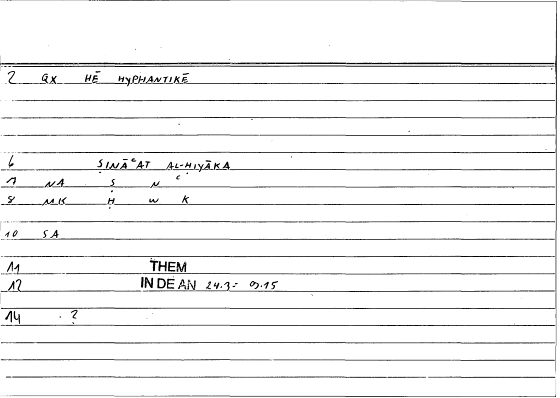 2 QX HĒ HYPHANTIKĒ
6 ṢINĀʿAT AL-ḤIYĀKA
7 NA Ṣ N ʿ
8 MK Ḥ W K
10 SA
11 THEM
12 IN DE AN 24.3 = 09.15
14 . ?